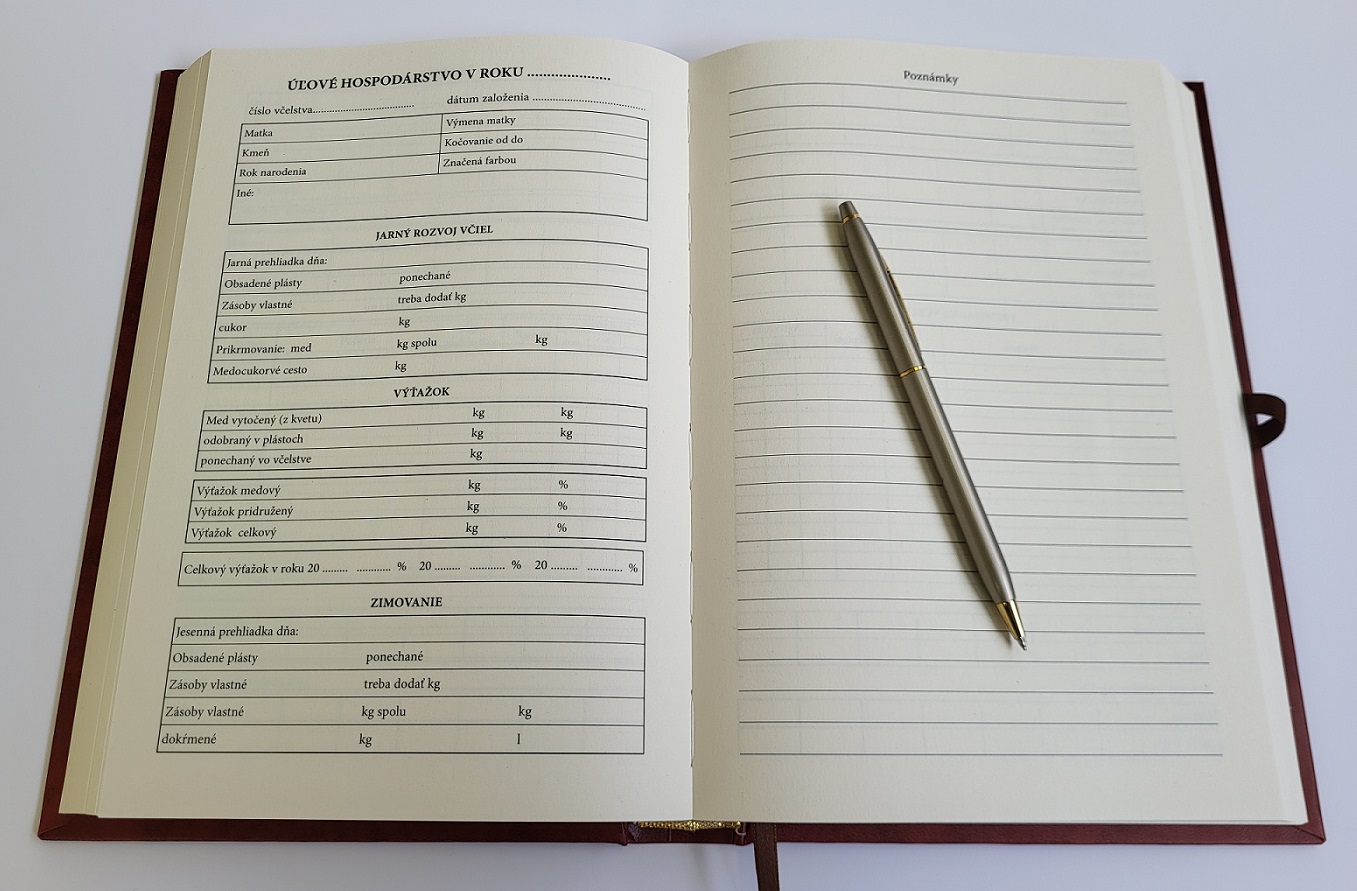 ÚĽOVÉ HOSPODÁRSTVO V ROKU ....................
číslo včelstva.................................. dátum založenia ......................................
Matka Výmena matky
Kmeň Kočovanie od do
Rok narodenia Značená farbou
Iné:
JARNÝ ROZVOJ VČIEL
Jarná prehliadka dňa:
Obsadené plásty ponechané
Zásoby vlastné treba dodať kg
cukor kg
Prikrmovanie: med kg spolu kg
Medocukorvé cesto kg
VÝŤAŽOK
Med vytočený (z kvetu) kg kg
odobraný v plástoch kg kg
ponechaný vo včelstve kg
Výťažok medový kg %
Výťažok pridružený kg %
Výťažok celkový kg %
Celkový výťažok v roku 20 ......... ............ % 20 ......... ............ % 20 ......... ............ %
ZIMOVANIE
Jesenná prehliadka dňa:
Obsadené plásty ponechané
Zásoby vlastné treba dodať kg
Zásoby vlastné kg spolu kg
dokŕmené kg l
Poznámky